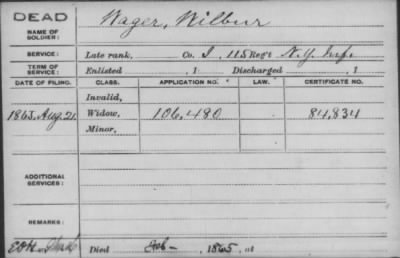 DEAD
NAME OF SOLDIER: Wager, Wilbur
SERVICE: Late rank, Co. I, 115 Reg't N.Y. Inf.
TERM OF SERVICE: Enlisted , 1 Discharged , 1
DATE OF FILING. CLASS. APPLICATION NO. LAW. CERTIFICATE NO.
Invalid,
1865, Aug. 21. Widow, 106,480 84,834
Minor,
ADDITIONAL SERVICES:
REMARKS:
Died Feb - 1865, at